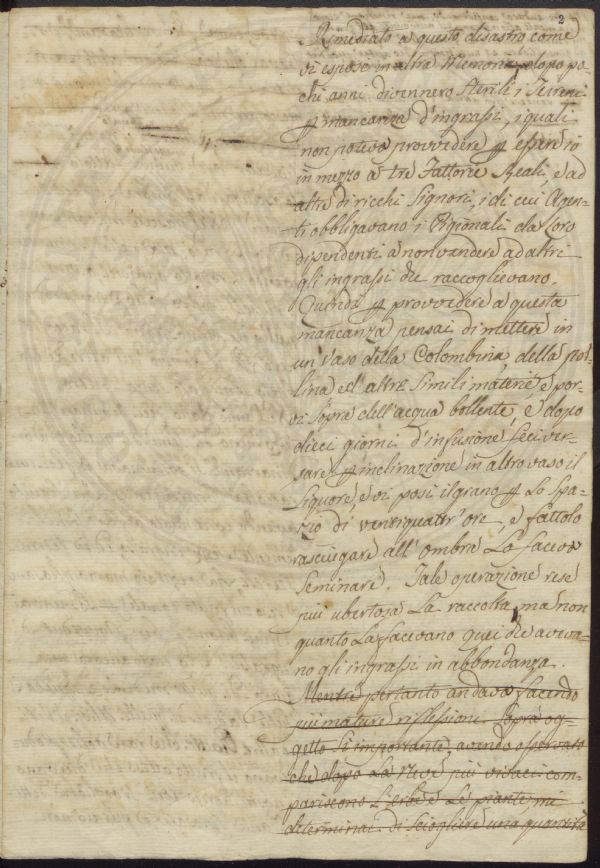 2
Rimediato a questo disastro come
vi esposi in altra Memoria, dopo po-
chi anni divennero sterili i Terreni
p mancanza d'ingrassi, i quali
non potevo provvedere p essere io
in mezzo a tre Fattorie Reali, e ad
altre di ricchi Signori, i di cui Agen-
ti obbligavano i Pigionali da Loro
dipendenti a non vendere ad altri
gli ingrassi che raccoglievano.
Quindi p provvedere a questa
mancanza pensai di mettere in
un vaso della Colombina, della pol-
lina ed altre simili materie, e por-
vi sopra dell'acqua bollente, e dopo
dieci giorni d'infusione feci ver-
sare p inclinazione in altro vaso il
liquore, e vi posi il grano p Lo spa-
zio di ventiquattr'ore, e fattolo
rasciugare all'ombra Lo facevo
Seminare. Tale operazione rese
più ubertosa La raccolta, ma non
quanto La facevano quei che aveva-
no gli ingrassi in abbondanza.
Mentre pertanto andavo facendo
più mature riflessioni sopra og-
getto sì importante, avendo osservato
che dopo La Neve più vivaci com-
pariscono L'erbe e Le piante mi
determinai di sciogliere una quantità